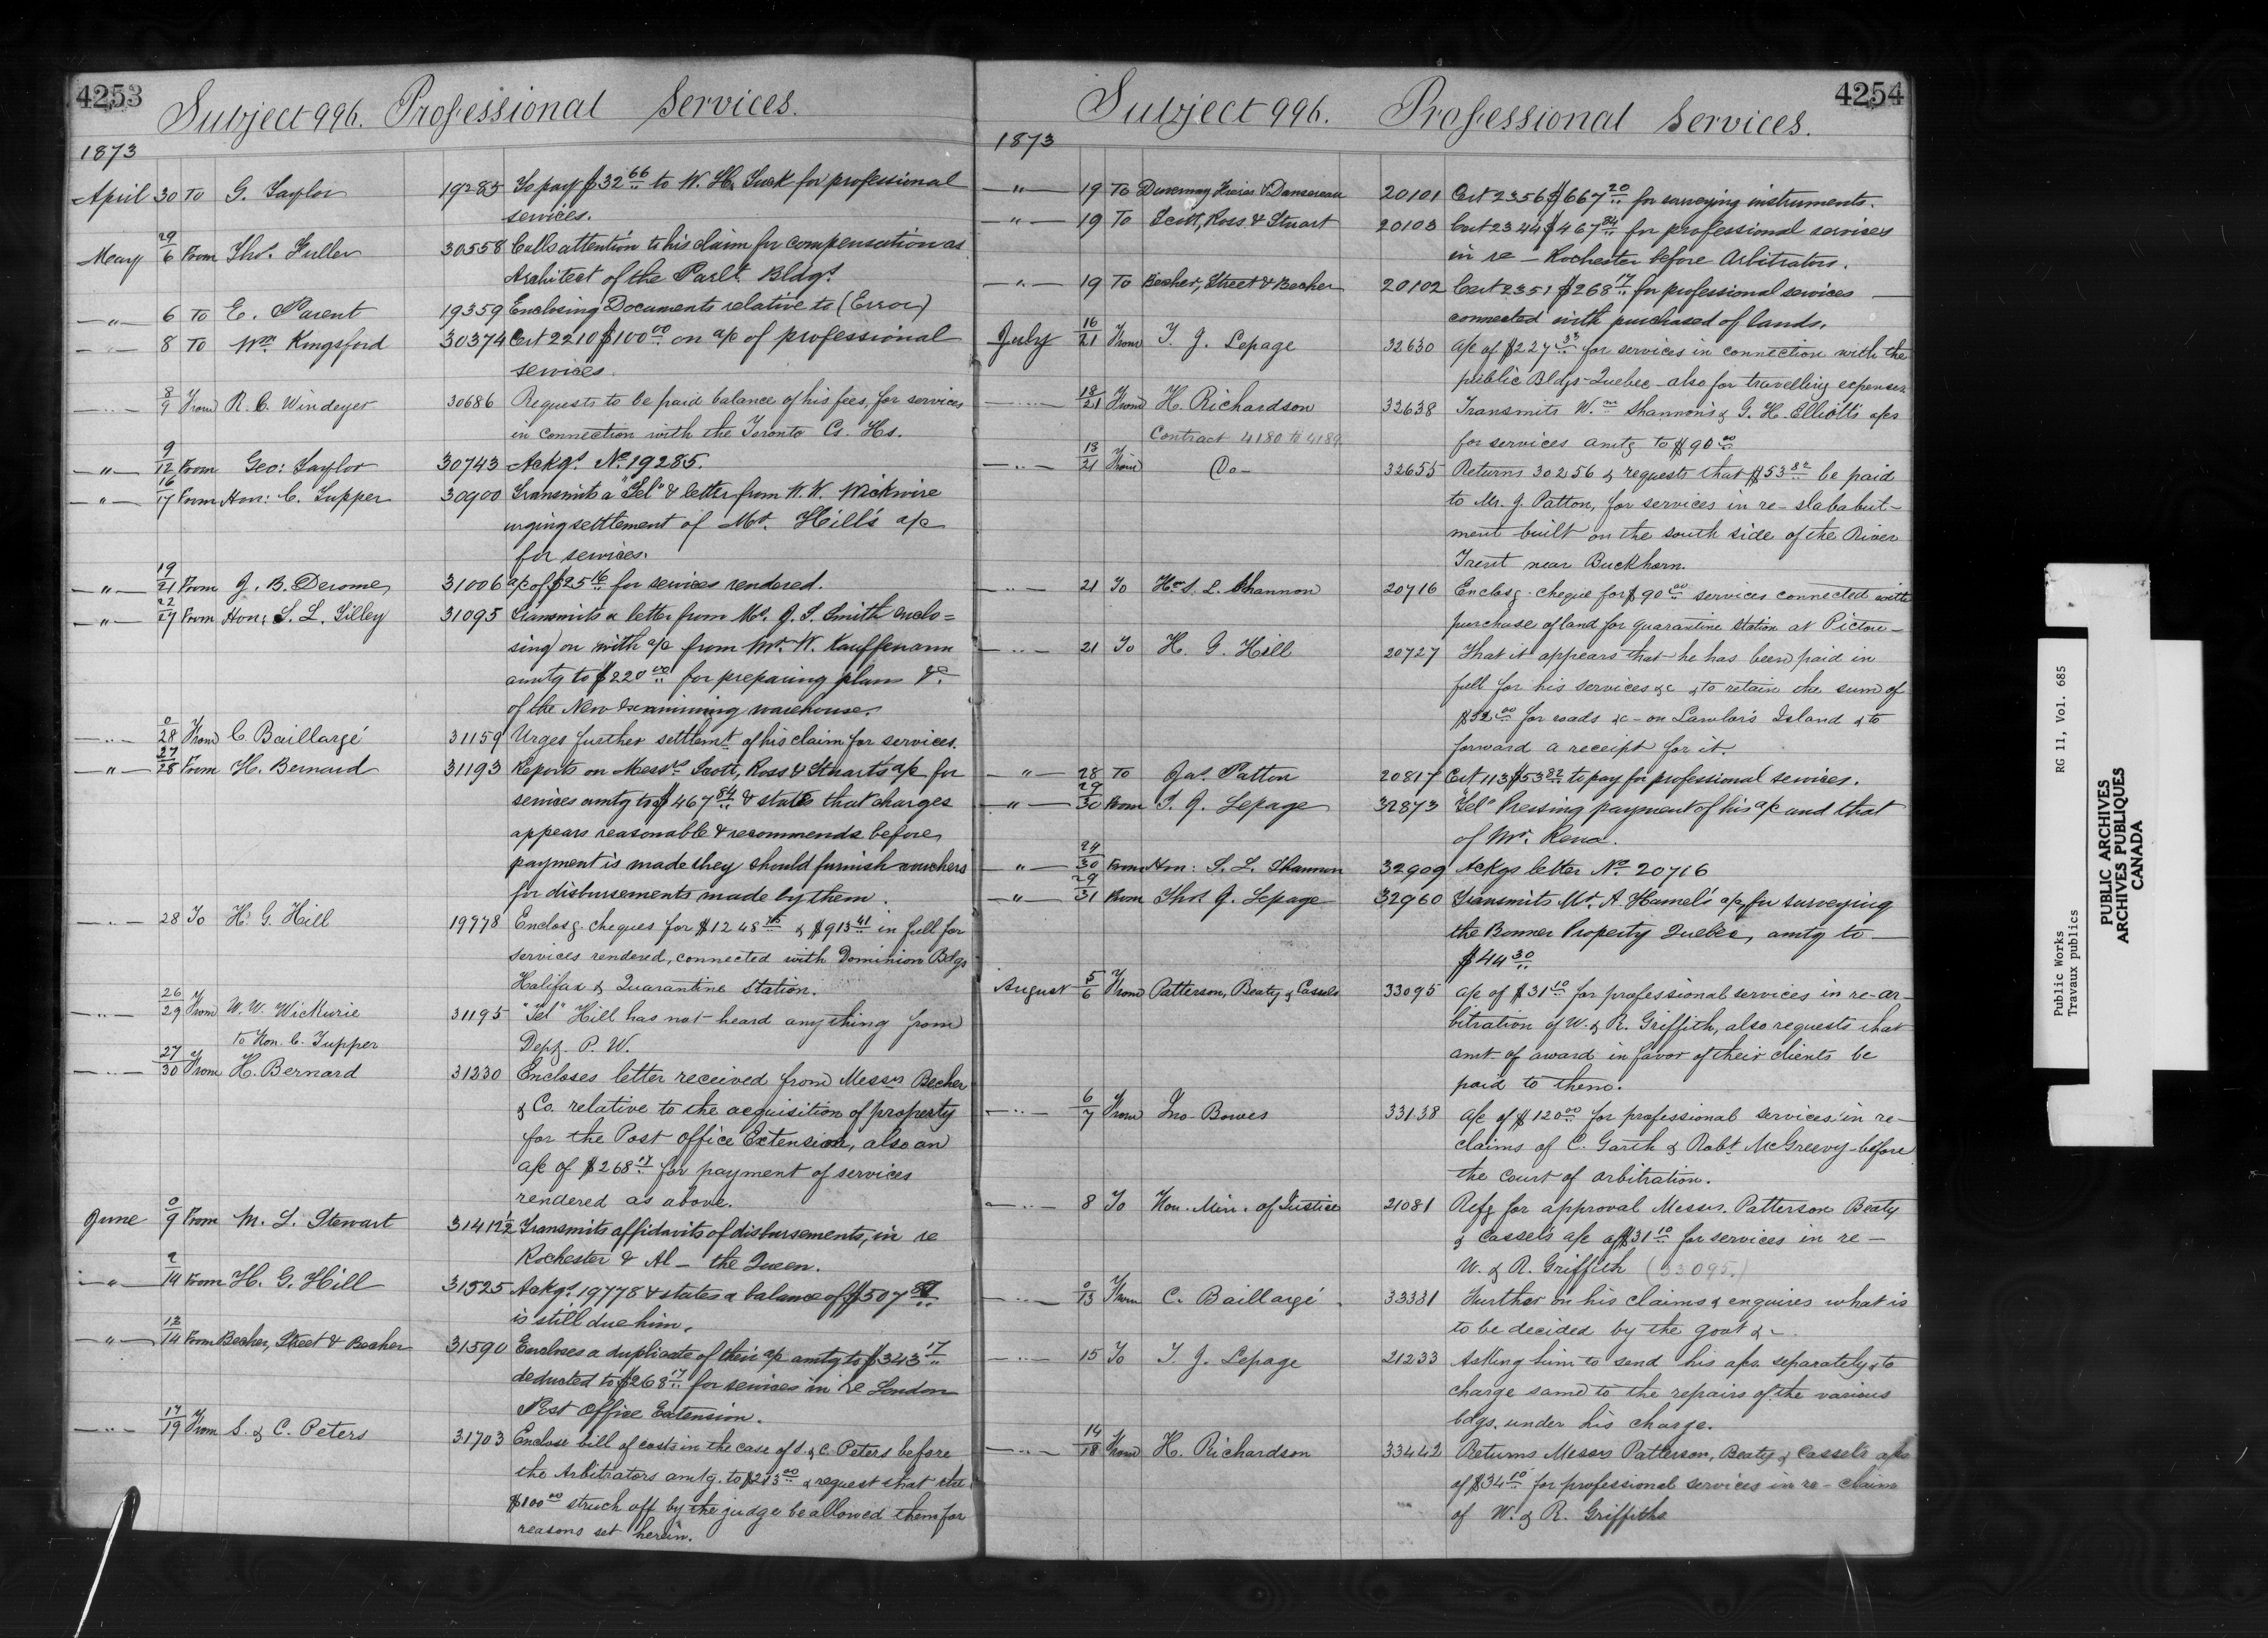 4253
Subject 996. Professional Services.
1873
April 30 To G. Taylor 19285 To pay $32.66 to W. H. Tuck for professional
services.
May 29/6 From Thos. Fuller 30558 Calls attention to his claim for compensation as
Architect of the Parlt. Bldgs.
—"— 6 To E. Parent 19359 Enclosing Documents relative to (Error)
—"— 8 To Wm. Kingsford 30374 Cert 2210 $100.00 on a/c of professional
services.
—"— 8/9 From R. C. Windeyer 30686 Requests to be paid balance of his fees, for services
in connection with the Toronto Cs. Hs.
—"— 9/12 From Geo: Taylor 30743 Ackgs. No. 19285.
—"— 16/17 From Hon: C. Tupper 30900 Transmits a "Tel" & letter from W. W. Wickwire
urging settlement of Mr. Hill's a/c
for services.
—"— 19/21 From J. B. Derome 31006 a/c of $25.16 for services rendered.
—"— 22/27 From Hon: S. L. Tilley 31095 Transmits a letter from Mr. J. S. Smith enclo=
sing on with a/c from Mr. W. Kauffmann
amtg to $220.00 for preparing plans &c
of the New Examining warehouse.
—"— 0/28 From C. Baillargé 31159 Urges further settlemt. of his claim for services.
—"— 27/28 From H. Bernard 31193 Reports on Messrs. Scott, Ross & Stuart's a/c for
services amtg to $467.84 & states that charges
appears reasonable & recommends before
payment is made they should furnish vouchers
for disbursements made by them.
—"— 28 To H. G. Hill 19778 Enclosg. cheques for $1248.75 & $913.41 in full for
services rendered, connected with Dominion Bdgs
Halifax & Quarantine Station.
—"— 26/29 From W. W. Wickwire 31195 "Tel" Hill has not heard anything from
to Hon. C. Tupper Dept. P. W.
—"— 27/30 From H. Bernard 31230 Encloses letter received from Messrs Becher
& Co. relative to the acquisition of property
for the Post Office Extension, also an
a/c of $268.17 for payment of services
rendered as above.
June 0/9 From M. L. Stewart 31412½ Transmits affidavits of disbursements, in re
Rochester & Al — the Queen.
—"— 2/14 From H. G. Hill 31525 Ackgs. 19778 & states a balance of $507
is still due him.
—"— 12/14 From Becher, Street & Becher 31590 Encloses a duplicate of their a/c amtg to $343.17
deducted to $268.17 for services in re London
Post Office Extension.
—"— 17/19 From S. & C. Peters 31703 Enclose bill of costs in the case of S. & C. Peters before
the Arbitrators amtg. to $213.00 & request that the
$100.00 struck off by the judge be allowed them for
reasons set herein.
4254
Subject 996. Professional Services.
1873
—"— 19 To Duvernay Freres & Dansereau 20101 Cert 2356 $667.20 for surveying instruments.
—"— 19 To Scott, Ross & Stuart 20103 Cert 2344 $467.84 for professional services
in re — Rochester before Arbitrators.
—"— 19 To Becher, Street & Becher 20102 Cert 2351 $268.17 for professional services —
connected with purchased of lands.
July 16/21 From T. J. Lepage 32630 a/c of $227.33 for services in connection with the
public Bldgs — Quebec — also for travelling expenses
—"— 18/21 From H. Richardson 32638 Transmits Wm. Shannon's & G. H. Elliott's a/cs
Contract 4180 to 4189 for services amtg to $90.00
—"— 13/21 From Do — 32655 Returns 30256 & requests that $53.82 be paid
to Mr. J. Patton, for services in re — slab abut-
ment built on the south side of the River
Trent near Buckhorn.
—"— 21 To Hon S. L. Shannon 20716 Enclosg. cheque for $90.00 services connected with
purchase of land for quarantine station at Pictou —
—"— 21 To H. G. Hill 20727 That it appears that he has been paid in
full for his services &c & to retain the sum of
$32.00 for roads &c — on Lawlor's Island & to
forward a receipt for it
—"— 28 To Jas. Patton 20817 Cert 113 $53.82 to pay for professional services.
—"— 29/30 From T. J. Lepage 32873 "Tel" Pressing payment of his a/c and that
of Mr. Rena.
—"— 24/30 From Hon: S. L. Shannon 32909 Ackgs letter No. 20716
—"— 29/31 From Thos J. Lepage 32960 Transmits Mr. A. Hamel's a/c, for surveying
the Bonner Property Quebec, amtg to —
$44.30
August 5/6 From Patterson, Beaty & Cassels 33095 a/c of $31.10 for professional services in re — ar-
bitration of W. & R. Griffith, also requests that
amt. of award in favor of their clients be
paid to them.
—"— 6/7 From Jno. Bowes 33138 a/c of $120.00 for professional services in re —
claims of C. Garth & Robt. McGreevy — before
the court of arbitration.
—"— 8 To Hon. Min. of Justice 21081 Refg for approval Messrs. Patterson Beaty
& Cassels a/c of $31.10 for services in re —
W. & R. Griffith (33095.)
—"— 0/13 From C. Baillargé 33331 Further on his claims & enquires what is
to be decided by the Govt &c.
—"— 15 To T. J. Lepage 21233 Asking him to send his a/cs. separately & to
charge same to the repairs of the various
bdgs. under his charge.
—"— 14/18 From H. Richardson 33442 Returns Messrs Patterson, Beaty & Cassels a/cs
of $34.10 for professional services in re — claim
of W. & R. Griffiths
Public Works RG 11, Vol. 685
Travaux publics
PUBLIC ARCHIVES
ARCHIVES PUBLIQUES
CANADA